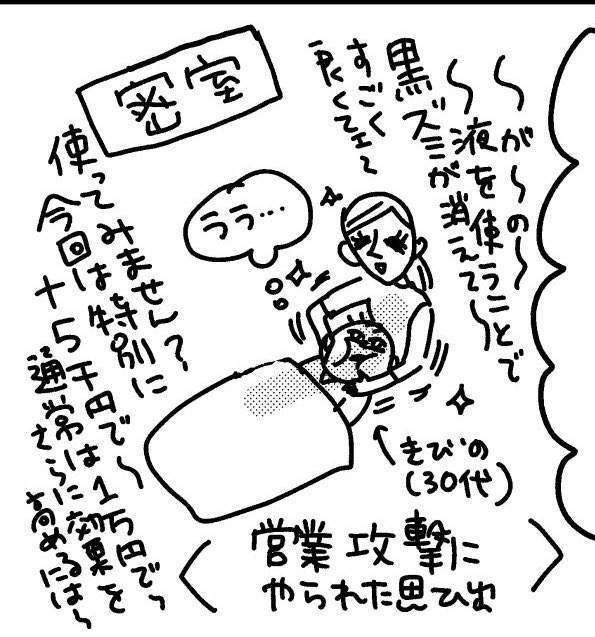 〜〜が〜の〜
〜液を使うことで
黒ズミが消えて〜
すごく
良くてェ〜
密室
うう…
使ってみません?
今回は特別に
+5千円で〜
通常は1万円で〜
さらに効果を
高めるには〜
きびの
(30代)
営業攻撃に
やられた思ひ出